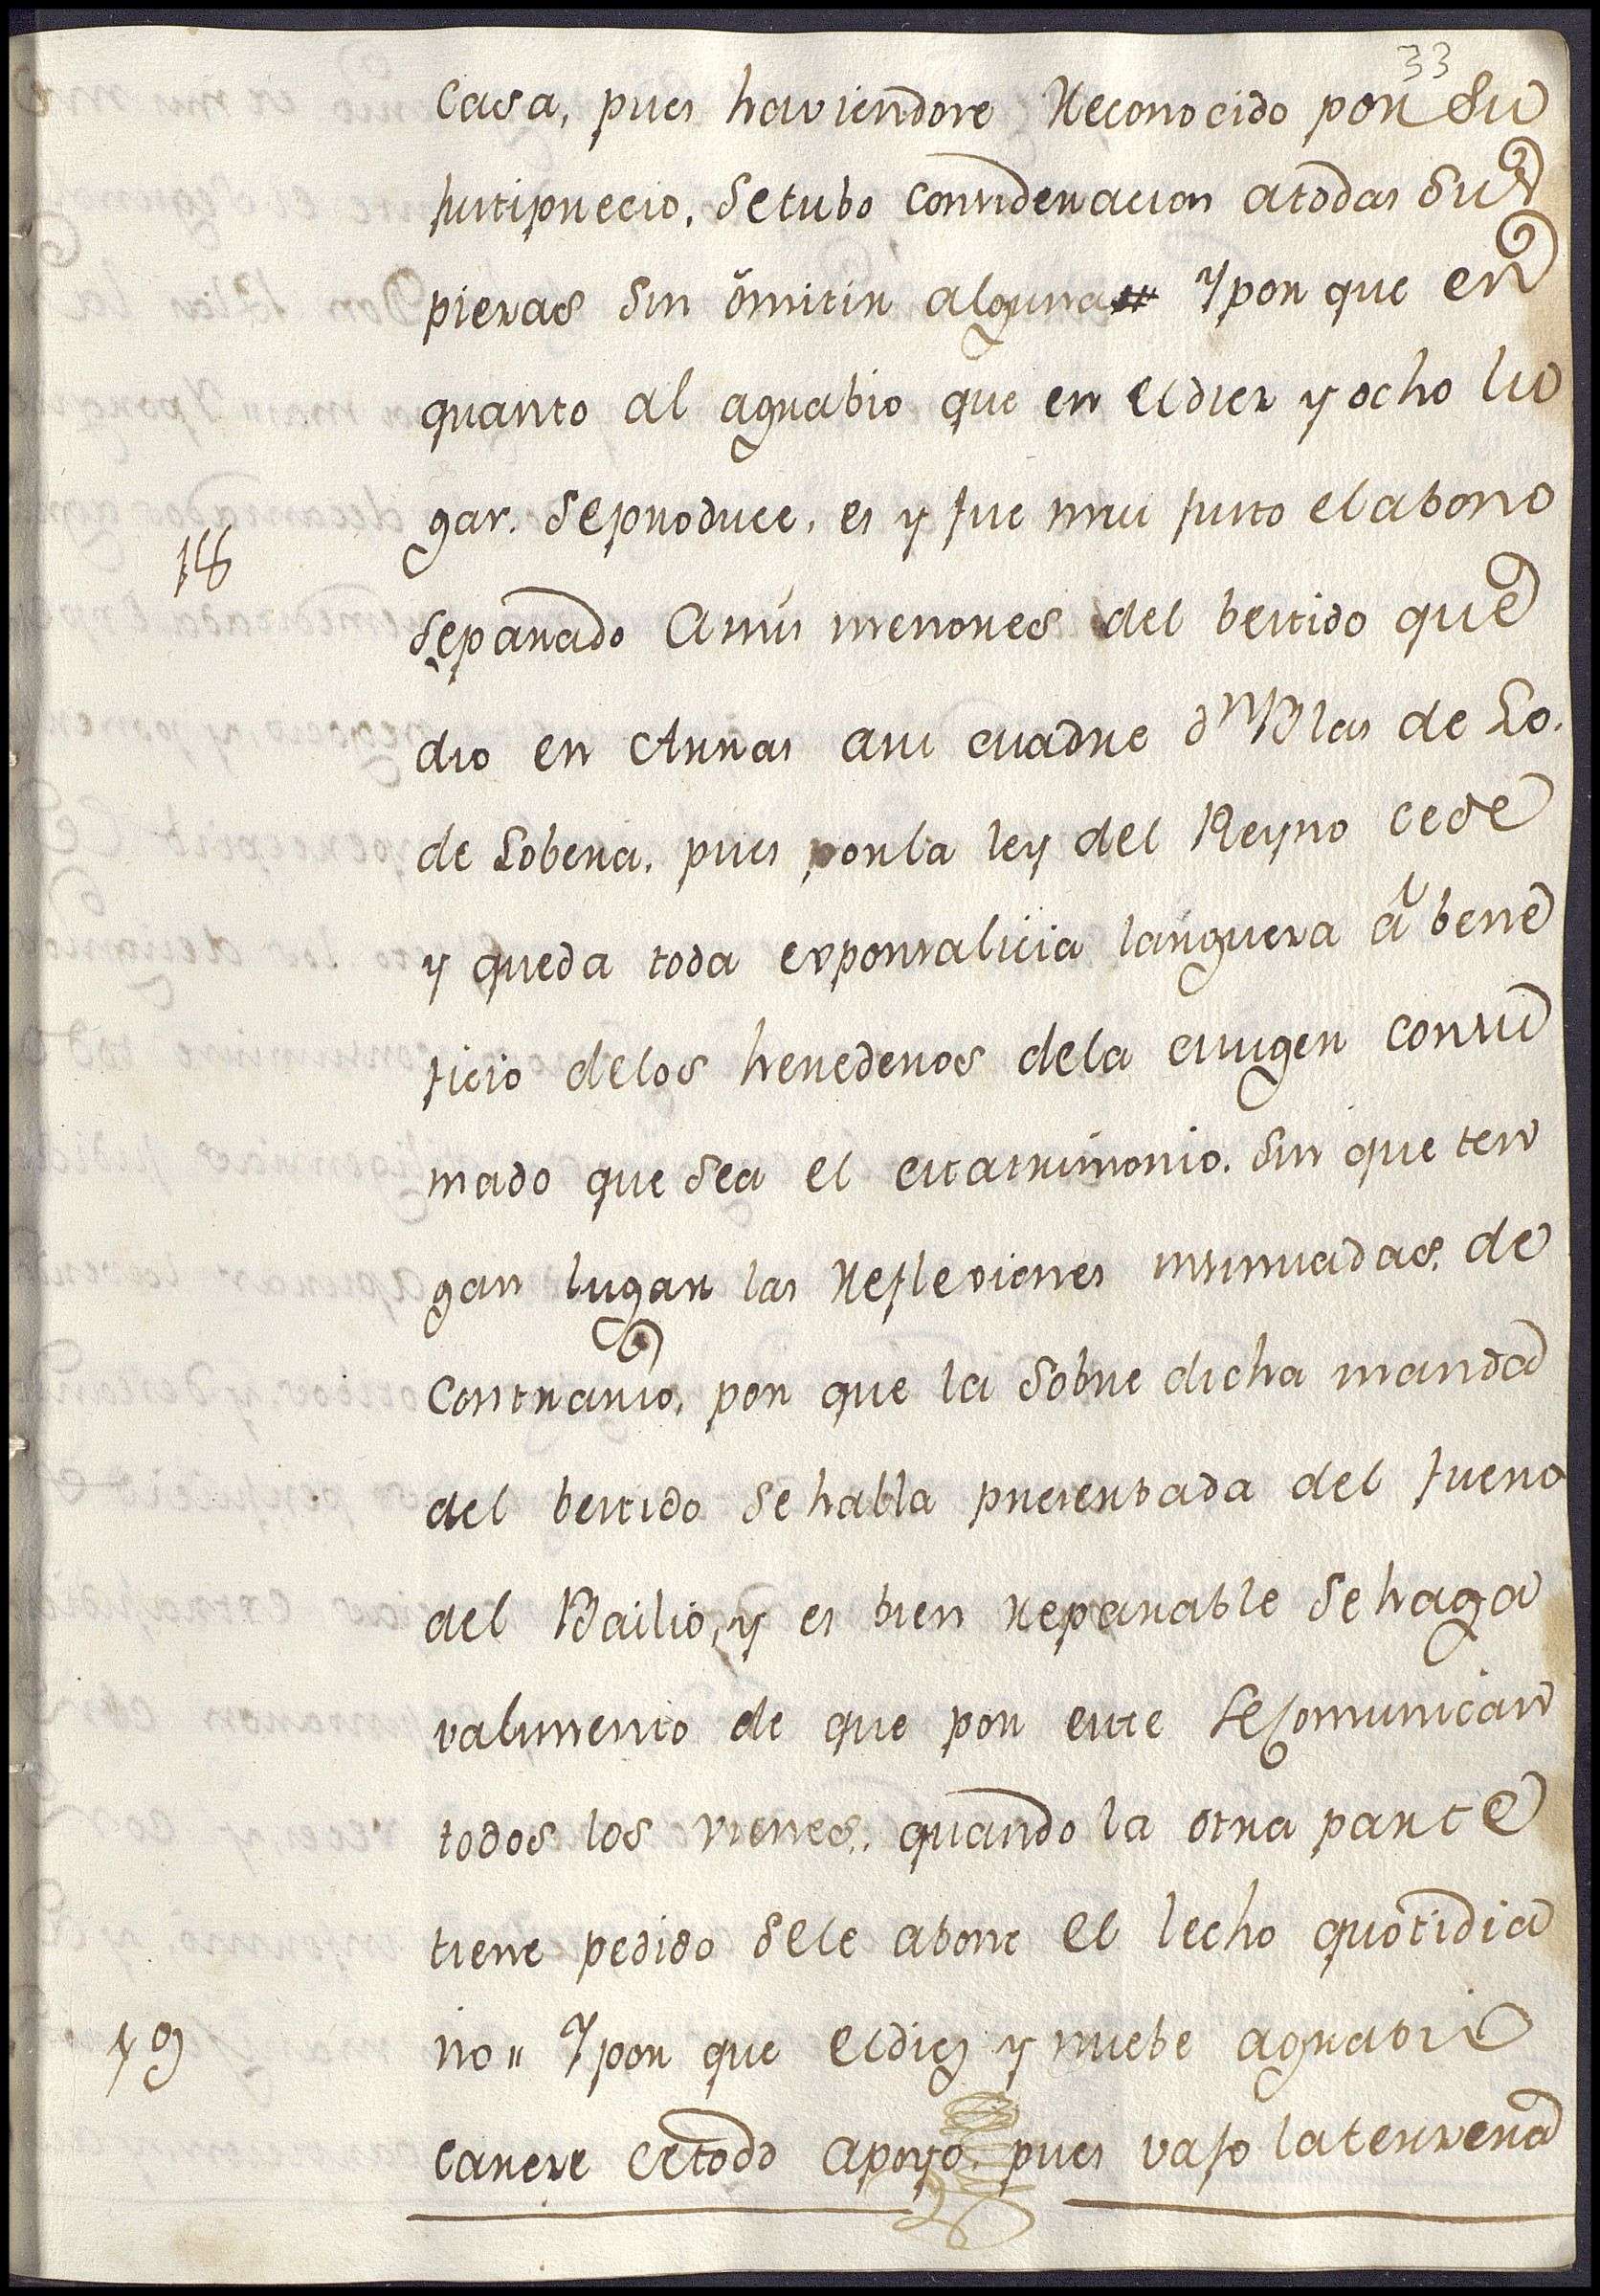 33
Casa, pues haviendose Reconocido por su
justiprecio, se tubo consideracion a todas sus
piezas sin omitir alguna Y por que en
quanto al agrabio que en el diez y ocho lu
gar. se produce, es y fue mui justo el abono
18
separado a mis menores del bestido que
dio en Arras a su Madre dn Blas de So.
de Lobera, pues por la ley del Reyno cede
y queda toda esponsalicia largueza a bene
ficio de los herederos de la Muger consu
mado que sea el Matrimonio. sin que ten
gan lugar las Reflexiones insinuadas. de
Contrario, por que la sobre dicha manda
del bestido se habla presentada del fuero
del Bailio, y es bien Reparable se haga
valimento de que por este se comunican
todos los vienes. quando la otra parte
tiene pedido se le abone el lecho quotidia
19
no " Y por que el diez y nuebe agrabio
carece de todo apoyo. pues vajo la tercera